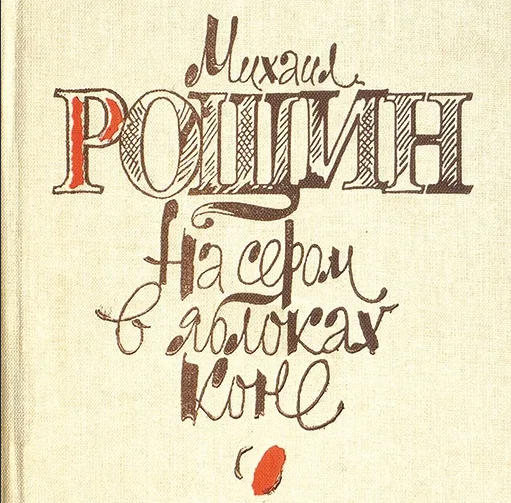 Михаил
РОЩИН
На сером
в яблоках
коне